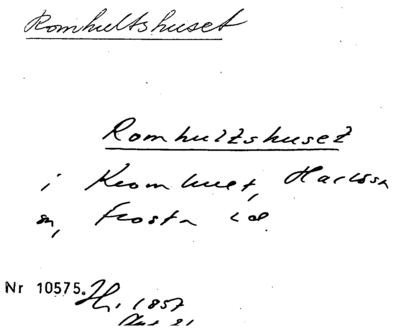 Romhultshuset
Romhultshuset
i Kromhult, Harlösa
sn, Frosta hd
Nr 10575. H. 1857